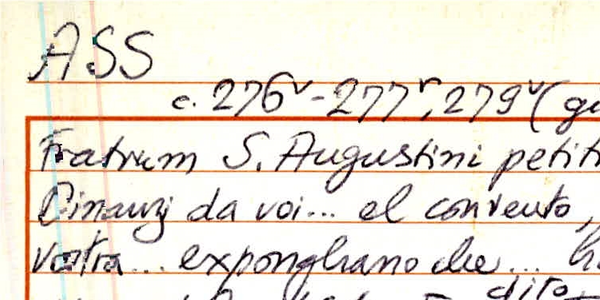 ASS
c. 276v-277r, 279v (
Fratrum S. Augustini petiti
Dinanzi da voi... el convento,
Vostra... exponghano che...
dito